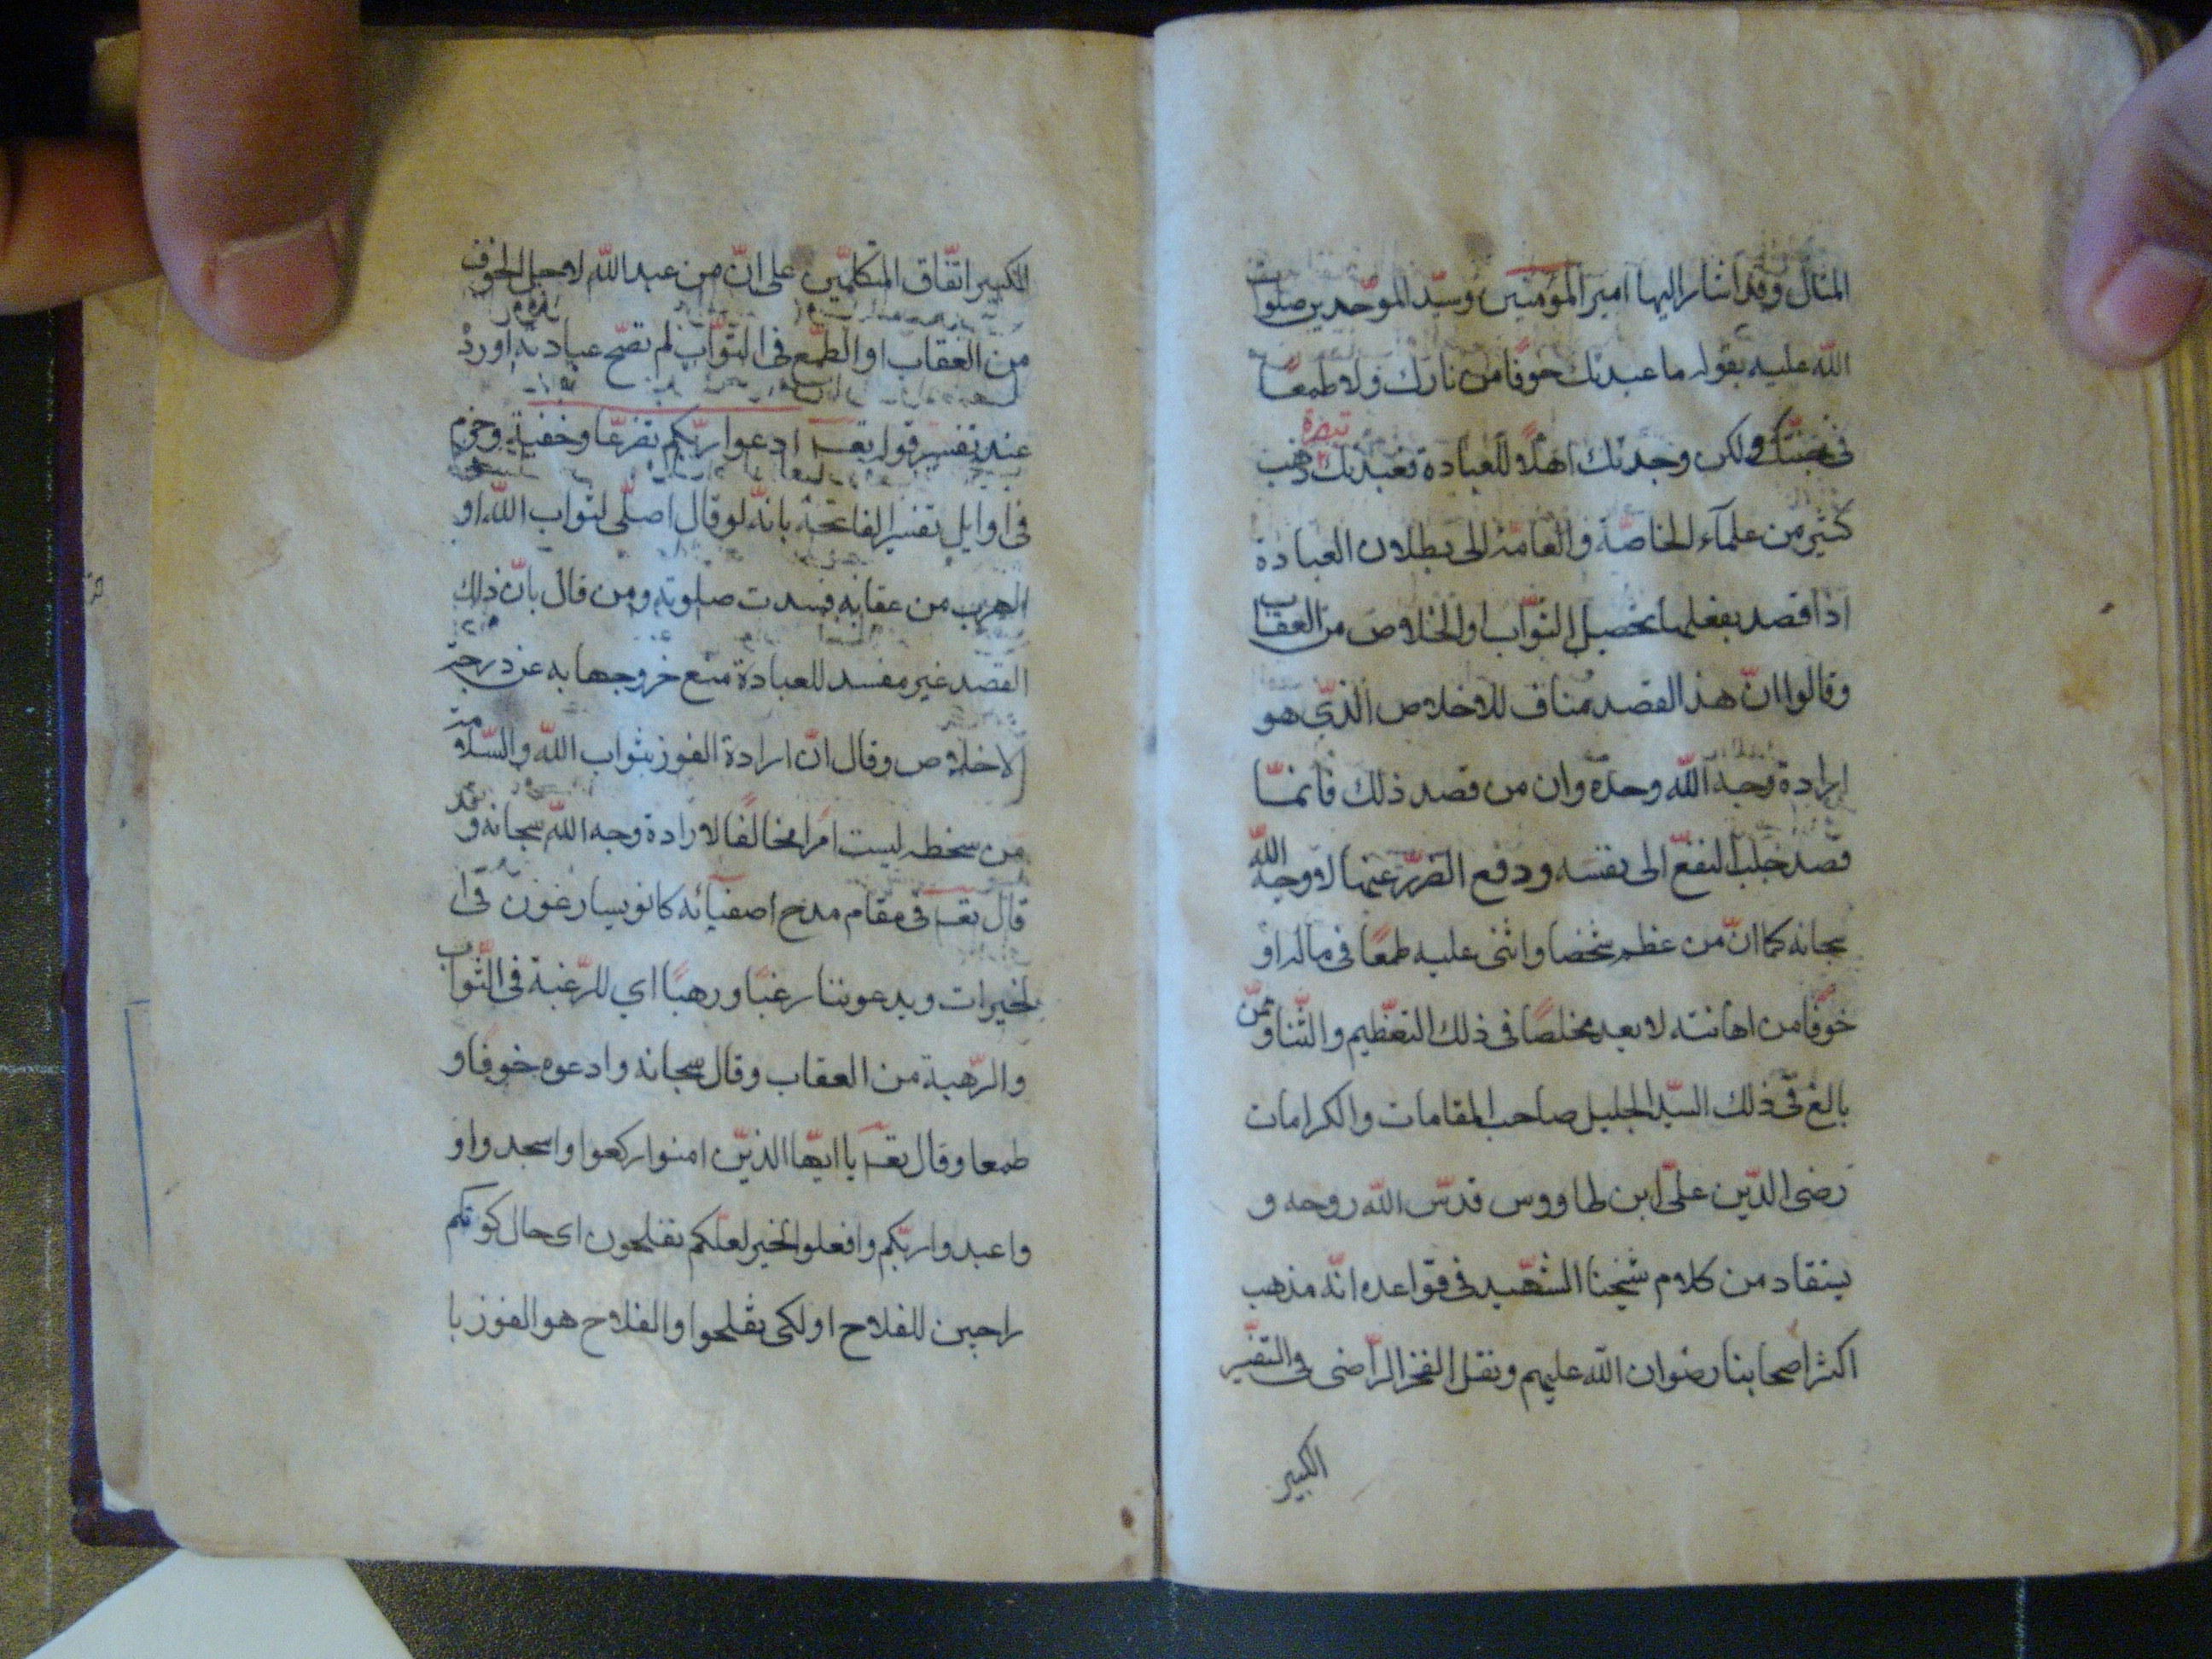 المنال وقد اشار اليها امير المؤمنين وسيّد الموحّدين صلوات
اللّه عليه بقوله ما عبدتك خوفًا من نارك ولا طمعًا
فى جنّتك ولكن وجدتك اهلًا للعبادة فعبدتك تبصرة ذهب
كثير من علمآء الخاصّة والعامّة الى بطلان العبادة
اذا قصد بفعلها تحصيل الثوّاب او الخلاص من العقاب
وقالوا انّ هذا القصد مناف للاخلاص الذّي هو
ارادة وجه اللّه وحده وان من قصد ذلك فانمّا
قصد جلب النفع الى نفسه ودفع الضرّر عنها لا وجه اللّه
سجانه كما انّ من عظم شخصا واثنى عليه طمعًا فى ماله او
خوفًا من اهانته لا يعد مخلصًا فى ذلك التعظيم والثّنا وممّن
بالغ فى ذلك السّيد الجليل صاحب المقامات والكرامات
رضى الدّين علىّ ابن طاووس قدسّ اللّه روحه و
يستفاد من كلام شيخنا الشّهيد فى قواعده انّه مذهب
اكثر اصحابنا رضوان اللّه عليهم ونقل الفخر الرّاضى فى التفسّير
الكبير
الكبير اتّفاق المتكلمّين على انّ من عبد اللّه لاجل الخوف
من العقاب او الطمّع فى الثوّاب لم تصّح عبادته اورد
عند تفسير قوله تعـ ادعوا ربّكم تضرعّا وخفية وجزم
فى اوايل تفسير الفاتحة بانّه لو قال اصلّى لثواب اللّه او
الهرب من عقابه فسدت صلوته ومن قال بانّ ذلك
القصد غير مفسد للعبادة منع خروجها به عن درجة
الاخلاص وقال انّ ارادة الفوز بثواب اللّه والسّلامة
من سخطه ليست امرا مخالفًا لارادة وجه اللّه سجانه وقد
قال تعـ فى مقام مدح اصفيآئه كانو يسارعون فى ا
لخيرات ويدعوننا رغبًا ورهبًا اي للرّغبة فى الثّواب
والرّهبة من العقاب وقال سجانه وادعوه خوفًا و
طمعا وقال تعـ يا ايّها الذيّن امنوا اركعوا واسجدوا و
واعبدوا ربّكم وافعلوا الخير لعلّكم تفلحون اى حال كونكم
راجين للفلاح او لكى تفلحوا والفلاح هو الفوز با